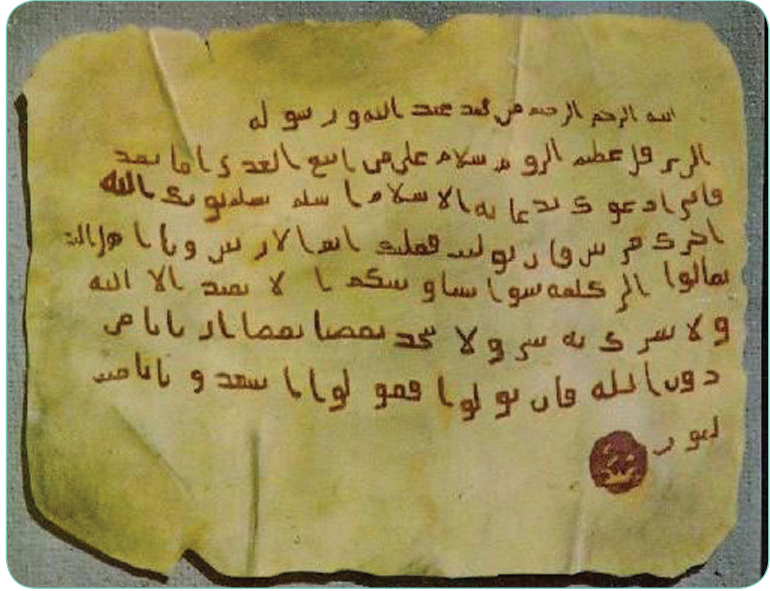 بسم الله الرحمن الرحيم من محمد عبد الله و رسوله
الى هرقل عظيم الروم سلام على من اتبع الهدى اما بعد
فانى ادعوك بدعاية الاسلام اسلم تسلم يوتك الله
اجرك مرتين فان توليت فعليك اثم الاريسين ويا اهل
تعالوا الى كلمة سوا بيننا وبينكم الا نعبد الا الله
ولا نشرك به ولا يتخذ بعضنا بعضا اربابا من
دون الله فان تولوا فقولوا اشهدوا بانا